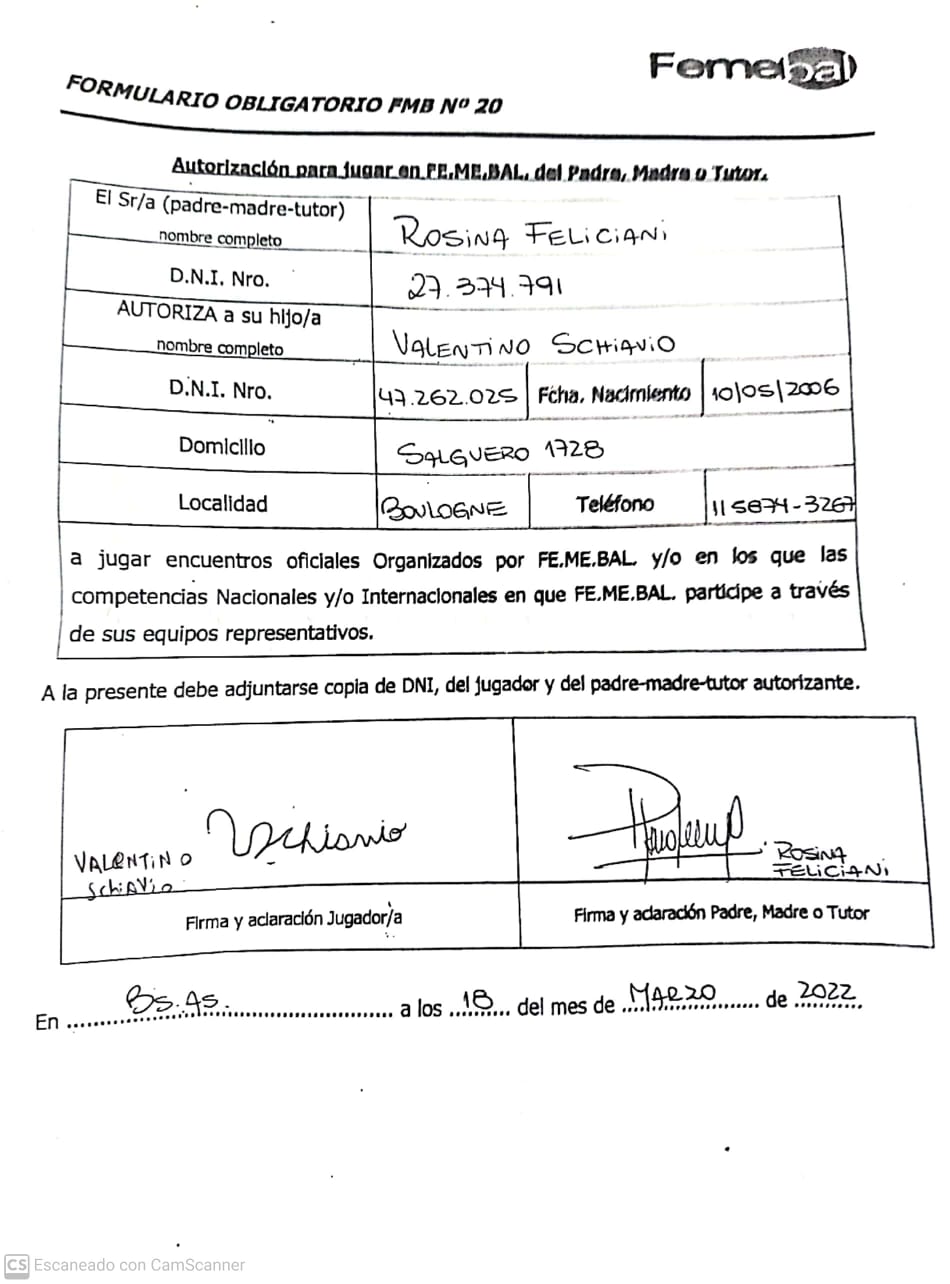 Femebal
FORMULARIO OBLIGATORIO FMB Nº 20
Autorización para jugar en FE.ME.BAL. del Padre, Madre o Tutor.
El Sr/a (padre-madre-tutor)
nombre completo
ROSINA FELICIANI
D.N.I. Nro.
27.374.791
AUTORIZA a su hijo/a
nombre completo
VALENTINO SCHIAVIO
D.N.I. Nro.
47.262.025
Fcha. Nacimiento
10/05/2006
Domicilio
SALGUERO 1728
Localidad
BOULOGNE
Teléfono
11 5874-3267
a jugar encuentros oficiales Organizados por FE.ME.BAL. y/o en los que las
competencias Nacionales y/o Internacionales en que FE.ME.BAL. participe a través
de sus equipos representativos.
A la presente debe adjuntarse copia de DNI, del jugador y del padre-madre-tutor autorizante.
VSchiavio
VALENTINO
SCHIAVIO
ROSINA
FELICIANI
Firma y aclaración Jugador/a
Firma y aclaración Padre, Madre o Tutor
En Bs. As. a los 18 del mes de MARZO de 2022
CS Escaneado con CamScanner